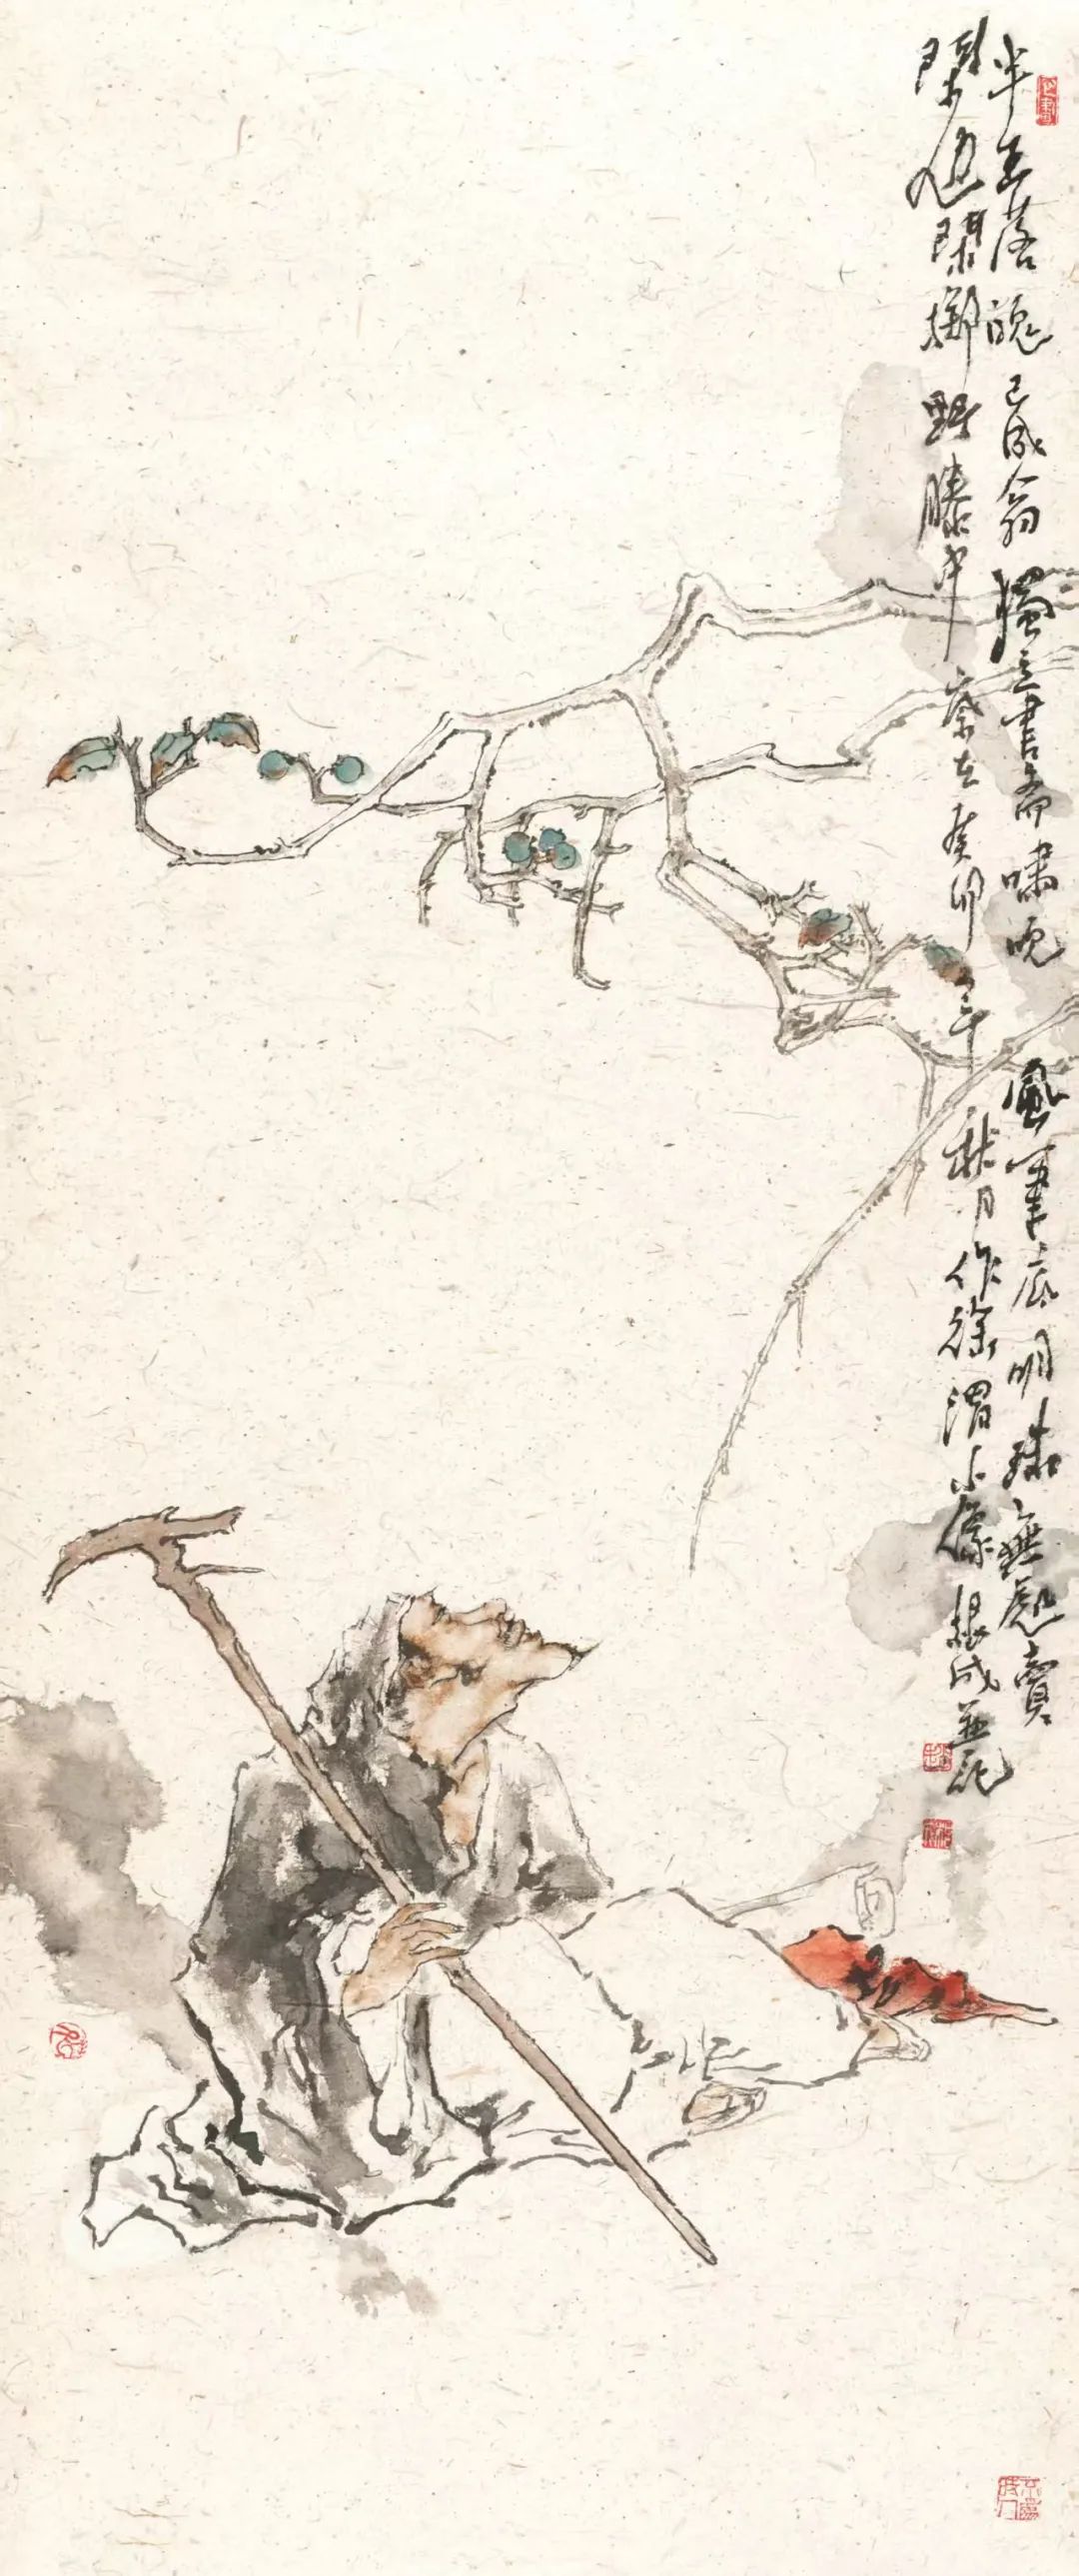 半生落魄已成翁獨立書齋嘯晚風筆底明珠無處賣
閑抛閑擲野藤中 歲在癸卯年秋月作徐渭小像根成並記